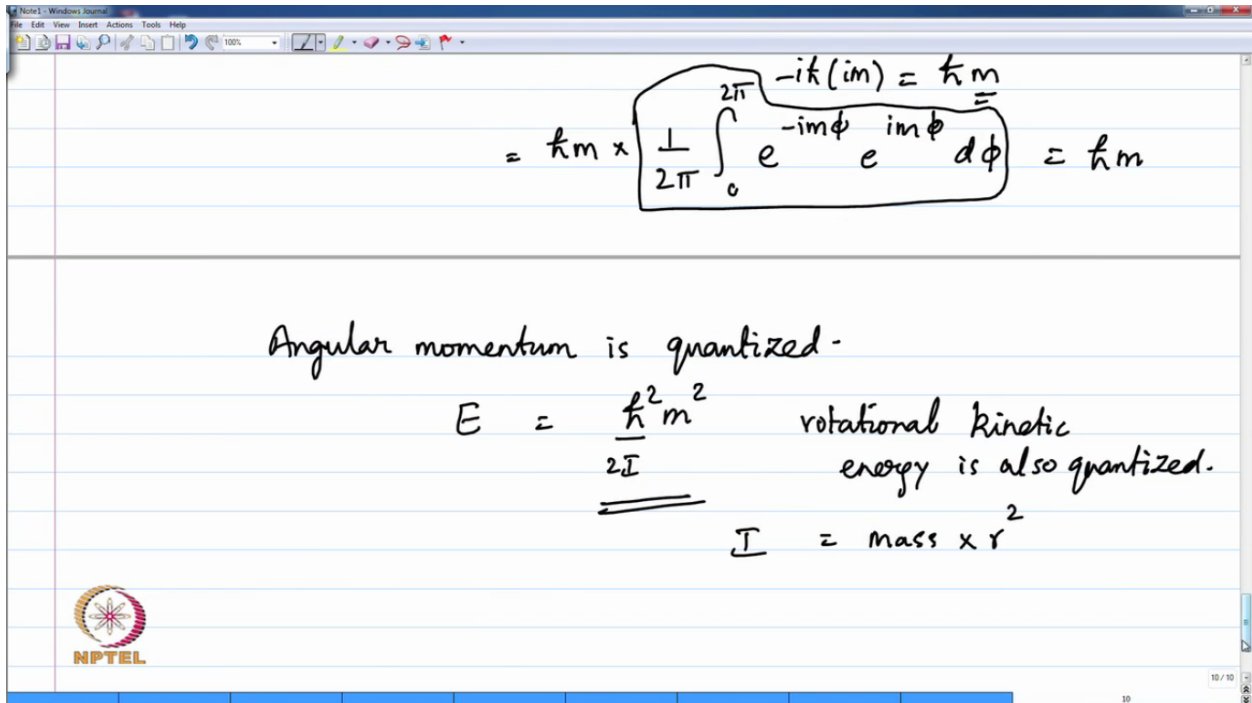 Note1 - Windows Journal
File Edit View Insert Actions Tools Help
100%
-iħ(im) = ħm
= ħm × 1/2π ∫₀^2π e^-imϕ e^imϕ dϕ = ħm
Angular momentum is quantized.
E = ħ²m²/2I rotational kinetic
energy is also quantized.
I = mass × r²
NPTEL
10 / 10
10